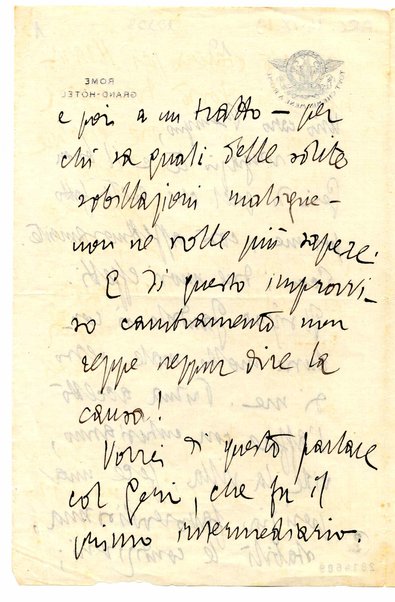 e poi a un tratto – per
chi sa quali delle solite
sobillazioni maligne –
non ne volle più sapere.
E di questo improvvi-
so cambiamento non
seppe neppur dire la
causa!
Vorrei di questo parlare
col Geri, che fu il
primo intermediario